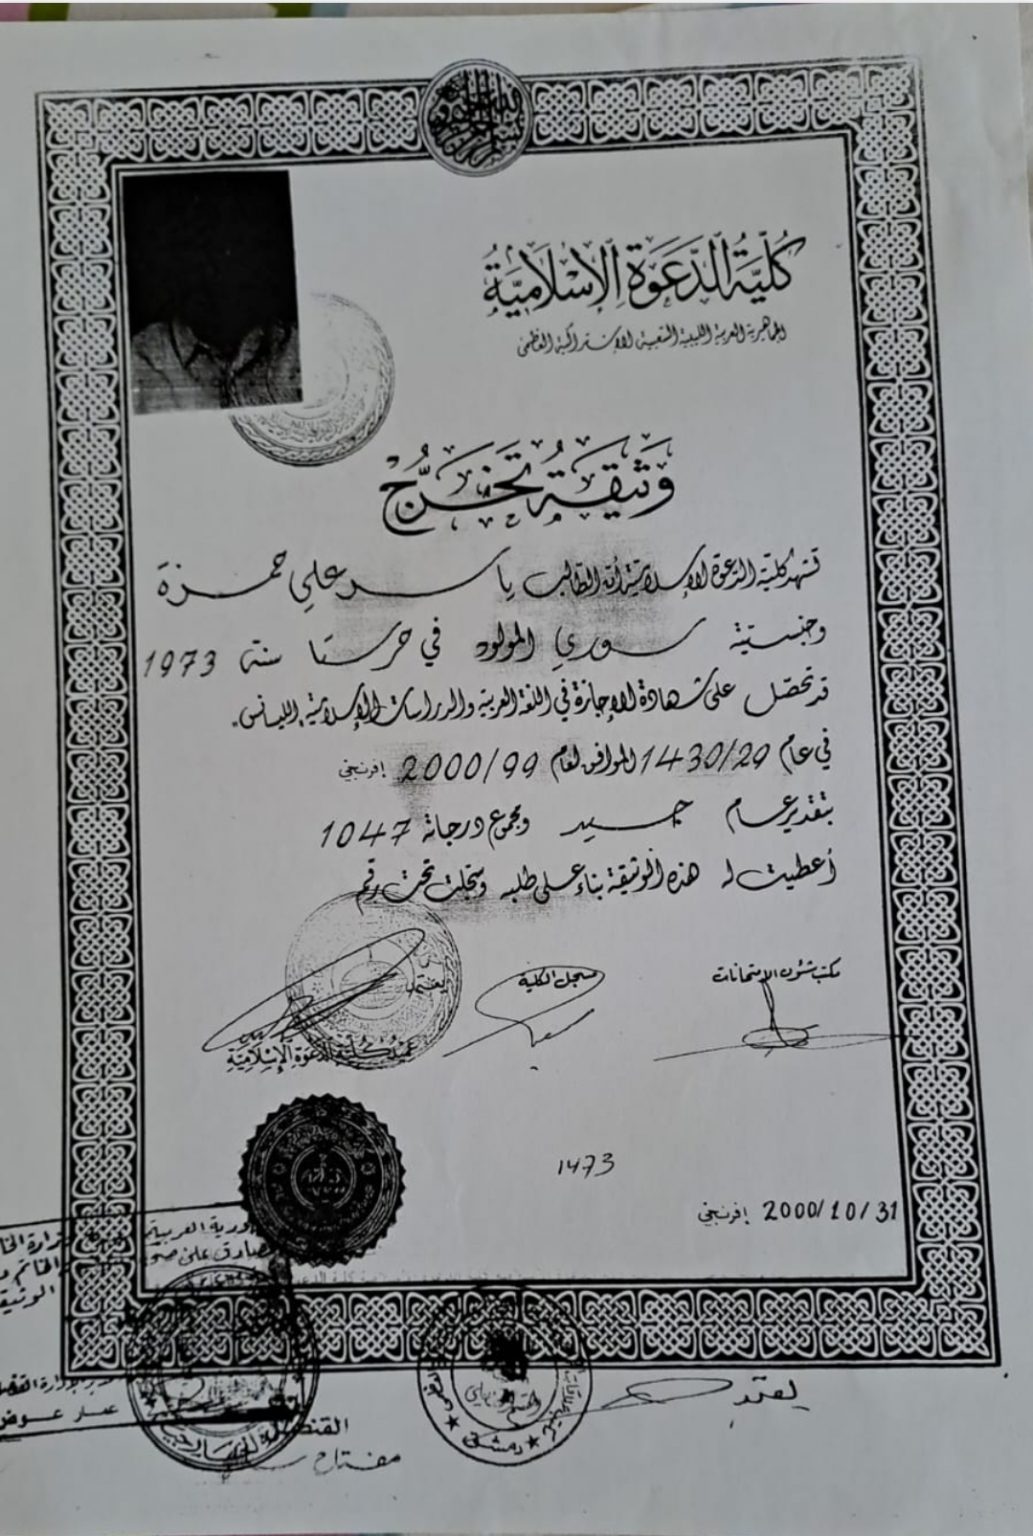 كُلِّيَّةُ الدَّعْوَةِ الإِسْلَامِيَّةِ
الجماهيرية العربية الليبية الشعبية الاشتراكية العظمى
وَثِيقَةُ تَخَرُّجْ
تشهد كلية الدعوة الإسلامية أن الطالب ياسر علي حمزة
وجنسيته سوري المولود في حرستا سنة 1973
قد تحصّل على شهادة الإجازة في اللغة العربية والدراسات الإسلامية "الليسانس".
في عام 1430/29 الموافق لعام 2000/99 إفرنجي
بتقدير عام جيد ومجموع درجاته 1047
أعطيت له هذه الوثيقة بناء على طلبه وسجلت تحت رقم
مكتب شئون الامتحانات
مسجل الكلية
يعتمد
عميد كلية الدعوة الإسلامية
1473
2000/10/31 إفرنجي
وزارة
صادق على
الخاتم
الوثيقة
عوض
يعتمد
دمشق
القنصل
مفتاح